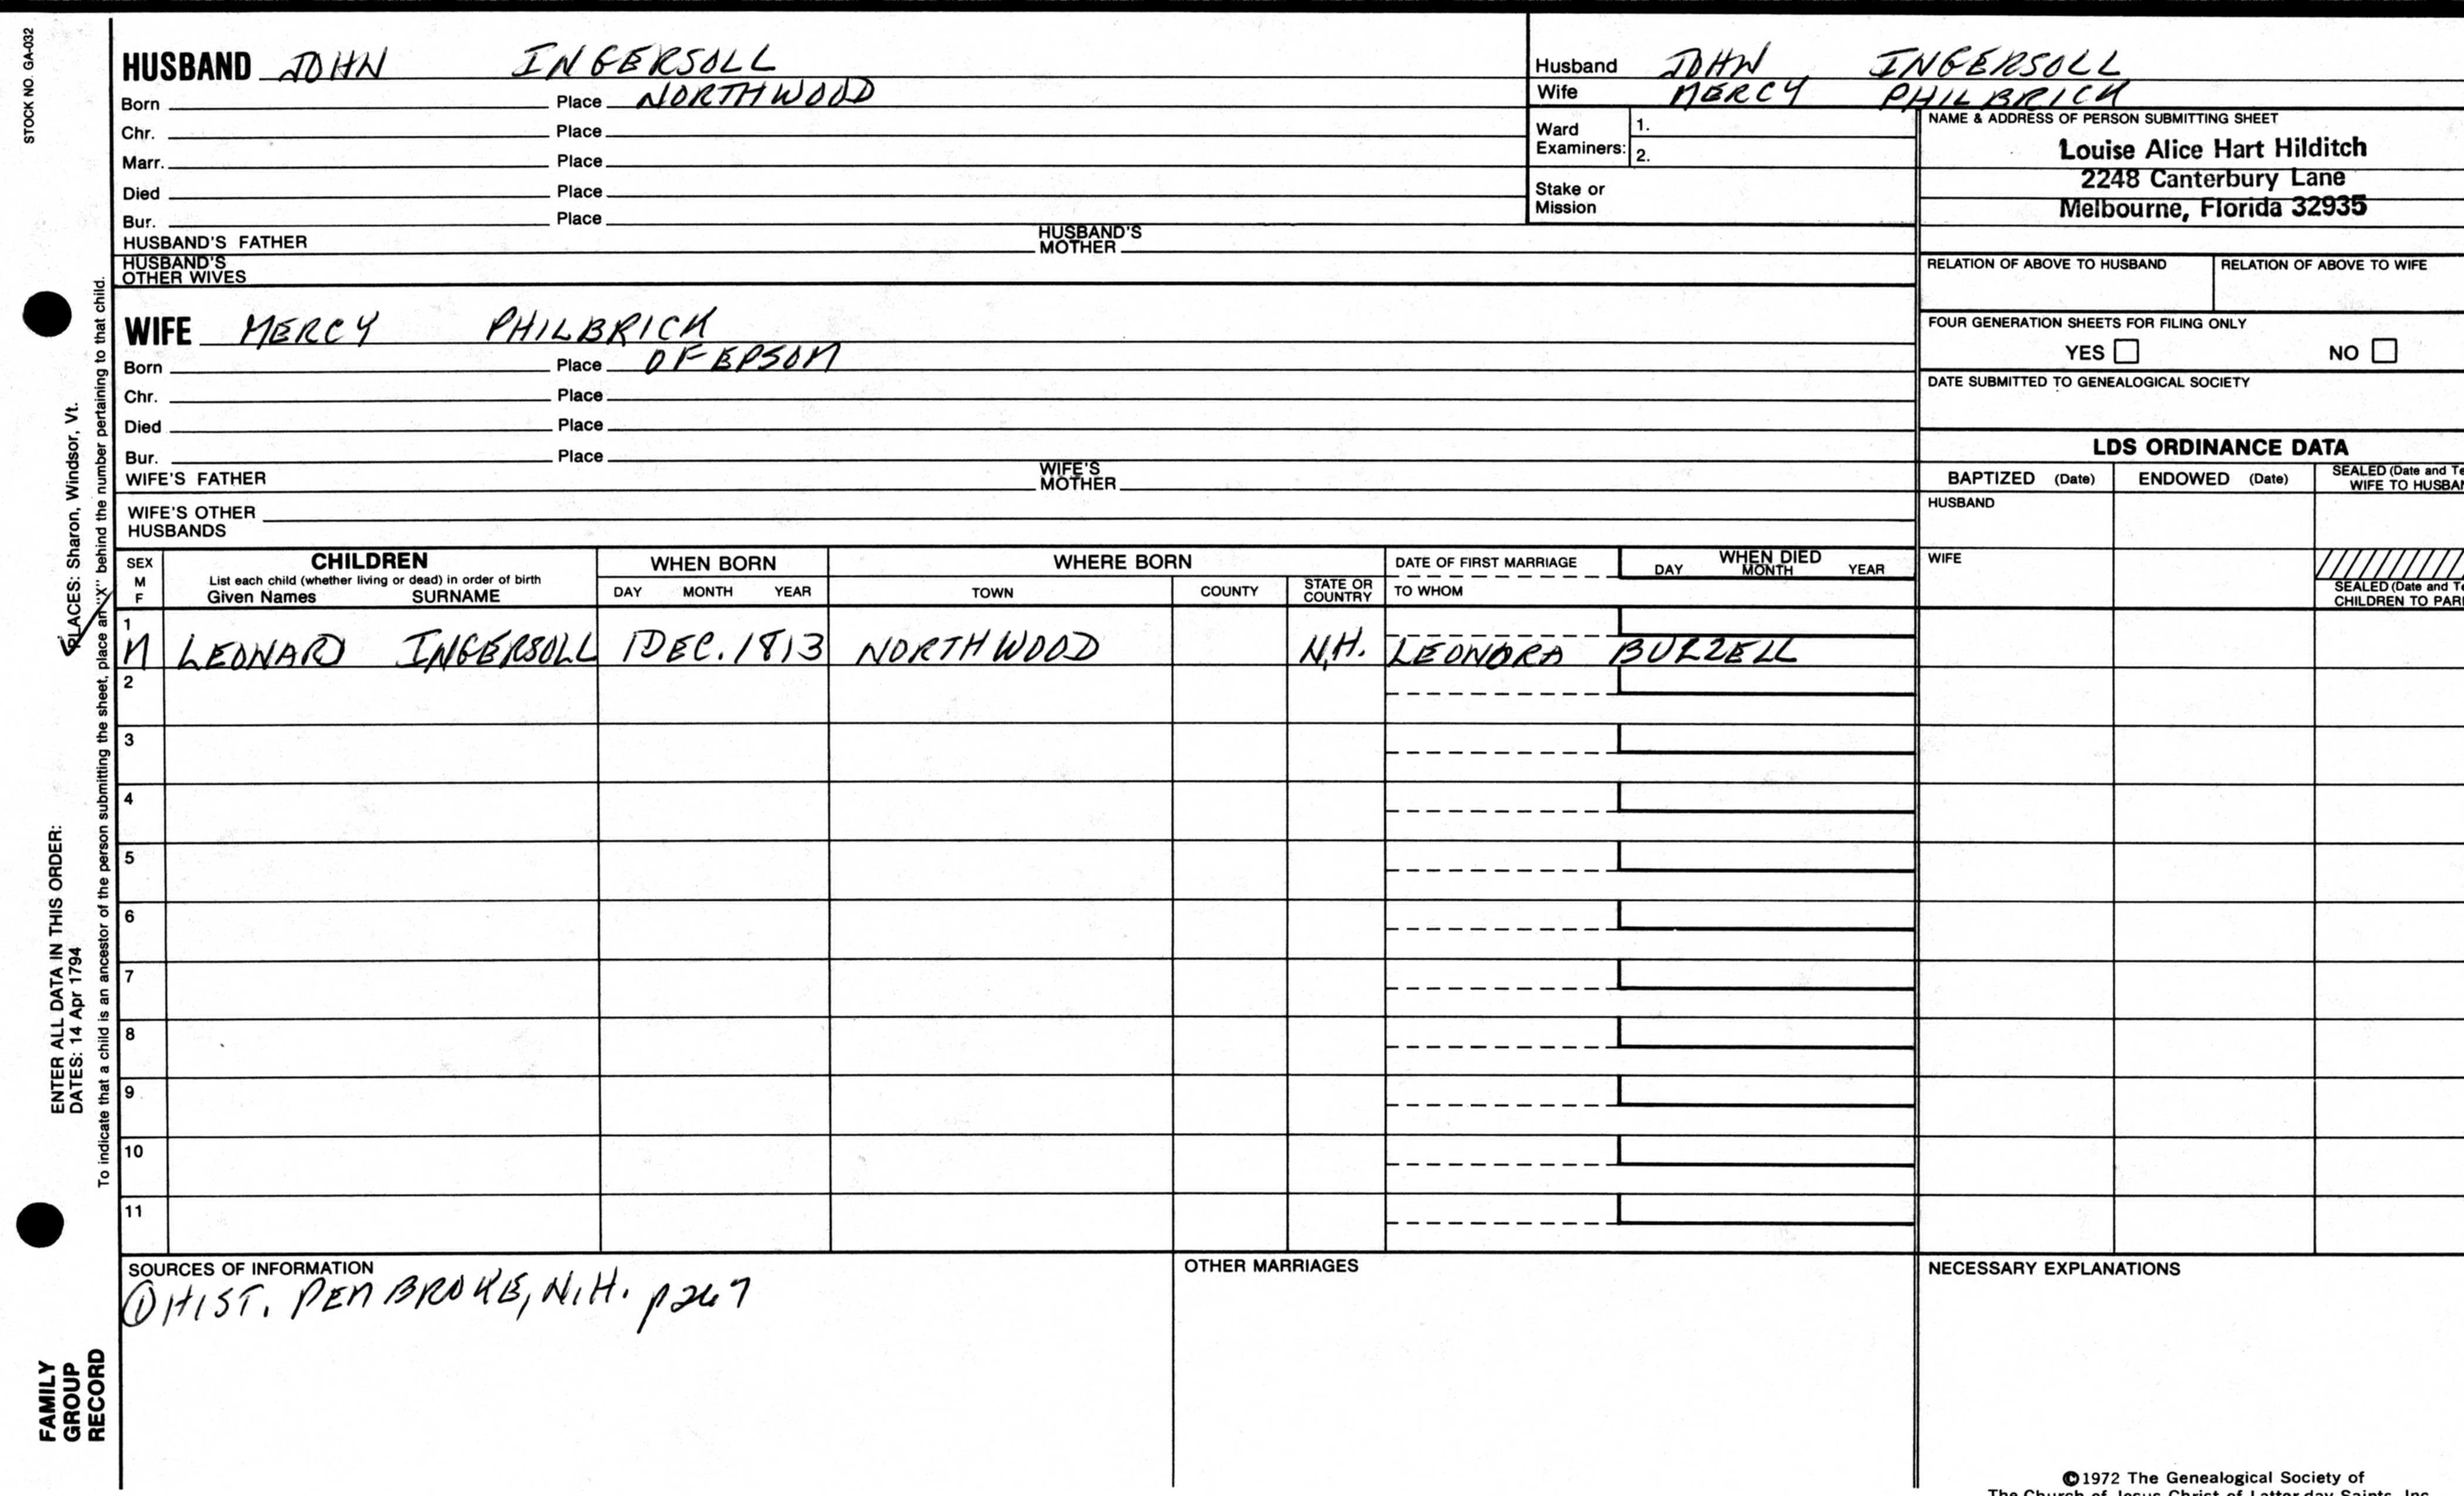 STOCK NO. GA-032
HUSBAND JOHN INGERSOLL
Born Place NORTHWOOD
Chr. Place
Marr. Place
Died Place
Bur. Place
HUSBAND'S FATHER HUSBAND'S MOTHER
HUSBAND'S OTHER WIVES
Husband JOHN INGERSOLL
Wife MERCY PHILBRICK
Ward Examiners: 1.
2.
Stake or Mission
NAME & ADDRESS OF PERSON SUBMITTING SHEET
Louise Alice Hart Hilditch
2248 Canterbury Lane
Melbourne, Florida 32935
RELATION OF ABOVE TO HUSBAND RELATION OF ABOVE TO WIFE
FOUR GENERATION SHEETS FOR FILING ONLY
YES NO
DATE SUBMITTED TO GENEALOGICAL SOCIETY
WIFE MERCY PHILBRICK
Born Place OF EPSOM
Chr. Place
Died Place
Bur. Place
WIFE'S FATHER WIFE'S MOTHER
WIFE'S OTHER HUSBANDS
LDS ORDINANCE DATA
BAPTIZED (Date) ENDOWED (Date) SEALED (Date and Te
WIFE TO HUSBAN
HUSBAND
WIFE
SEALED (Date and Te
CHILDREN TO PARE
SEX M F CHILDREN WHEN BORN WHERE BORN DATE OF FIRST MARRIAGE WHEN DIED
List each child (whether living or dead) in order of birth
Given Names SURNAME DAY MONTH YEAR TOWN COUNTY STATE OR COUNTRY TO WHOM DAY MONTH YEAR
1
M LEONARD INGERSOLL 1 DEC. 1813 NORTHWOOD N.H. LEONORA BUZZELL
2
3
4
5
6
7
8
9
10
11
SOURCES OF INFORMATION OTHER MARRIAGES NECESSARY EXPLANATIONS
① HIST. PEMBROKE, N.H. p267
ENTER ALL DATA IN THIS ORDER:
DATES: 14 Apr 1794 PLACES: Sharon, Windsor, Vt.
To indicate that a child is an ancestor of the person submitting the sheet, place an "X" behind the number pertaining to that child.
FAMILY
GROUP
RECORD
©1972 The Genealogical Society of
The Church of Jesus Christ of Latter-day Saints, Inc.